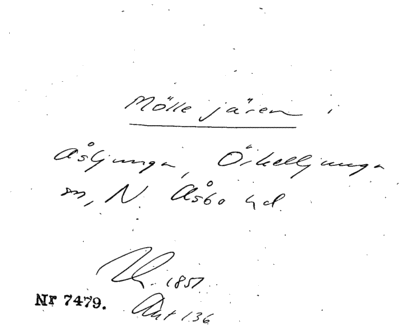 Mölle jären i
Åsljunga, Örkelljunga
sn, N. Åsbo hd.
1851
Nr 7479.
Ant 136